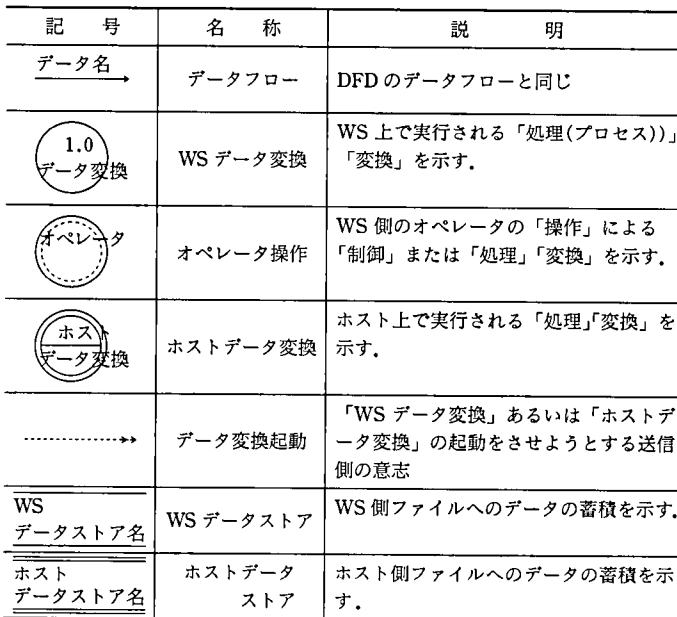 記 号 名 称 説 明
データ名
データフロー
DFD のデータフローと同じ
1.0
データ変換
WS データ変換
WS 上で実行される「処理(プロセス))」
「変換」を示す.
オペレータ
オペレータ操作
WS 側のオペレータの「操作」による
「制御」または「処理」「変換」を示す.
ホスト
データ変換
ホストデータ変換
ホスト上で実行される「処理」「変換」を
示す.
データ変換起動
「WS データ変換」あるいは「ホストデ
ータ変換」の起動をさせようとする送信
側の意志
WS
データストア名
WS データストア
WS 側ファイルへのデータの蓄積を示す.
ホスト
データストア名
ホストデータ
ストア
ホスト側ファイルへのデータの蓄積を示
す.